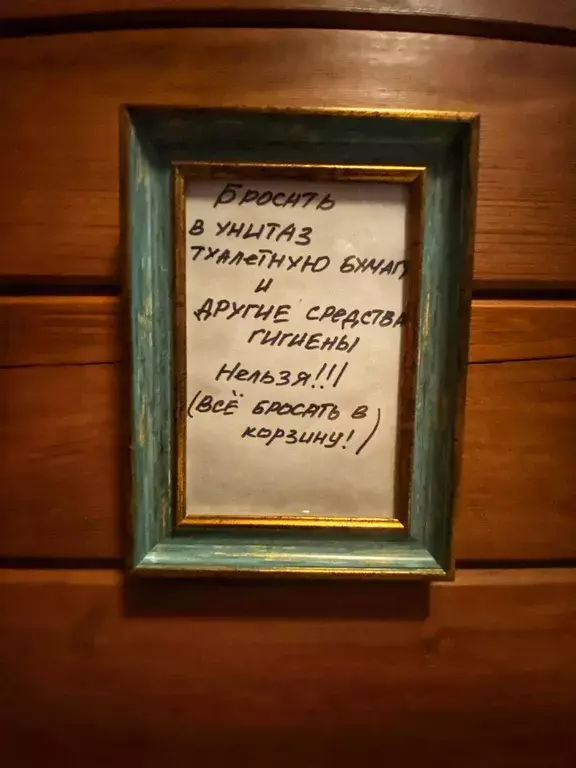 Бросать
в унитаз
туалетную бумаг
и
другие средства
гигиены
Нельзя!!!
(всё бросать в
корзину!)